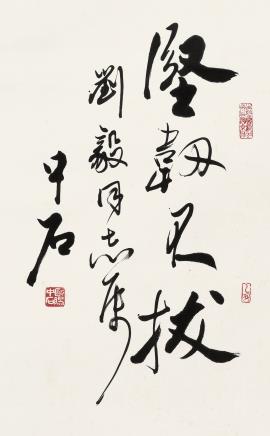 堅韌不拔
劉毅同志属
中石